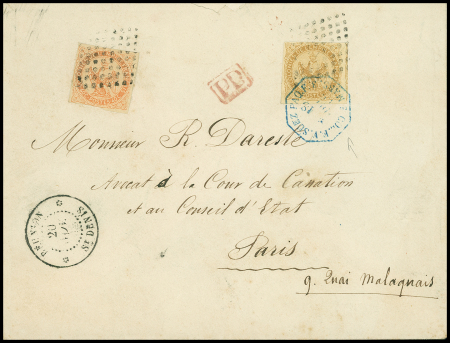 PD
Monsieur R. Dareste
Avocat à la Cour de Cassation
et au Conseil d'Etat
Paris
9. Quai Malaquais
RÉUNION
20
ST DENIS